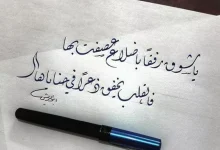 يا شوق رفقًا بأضلاع عصفت بها
فالقلب يخفق ذعرًا في حناياها